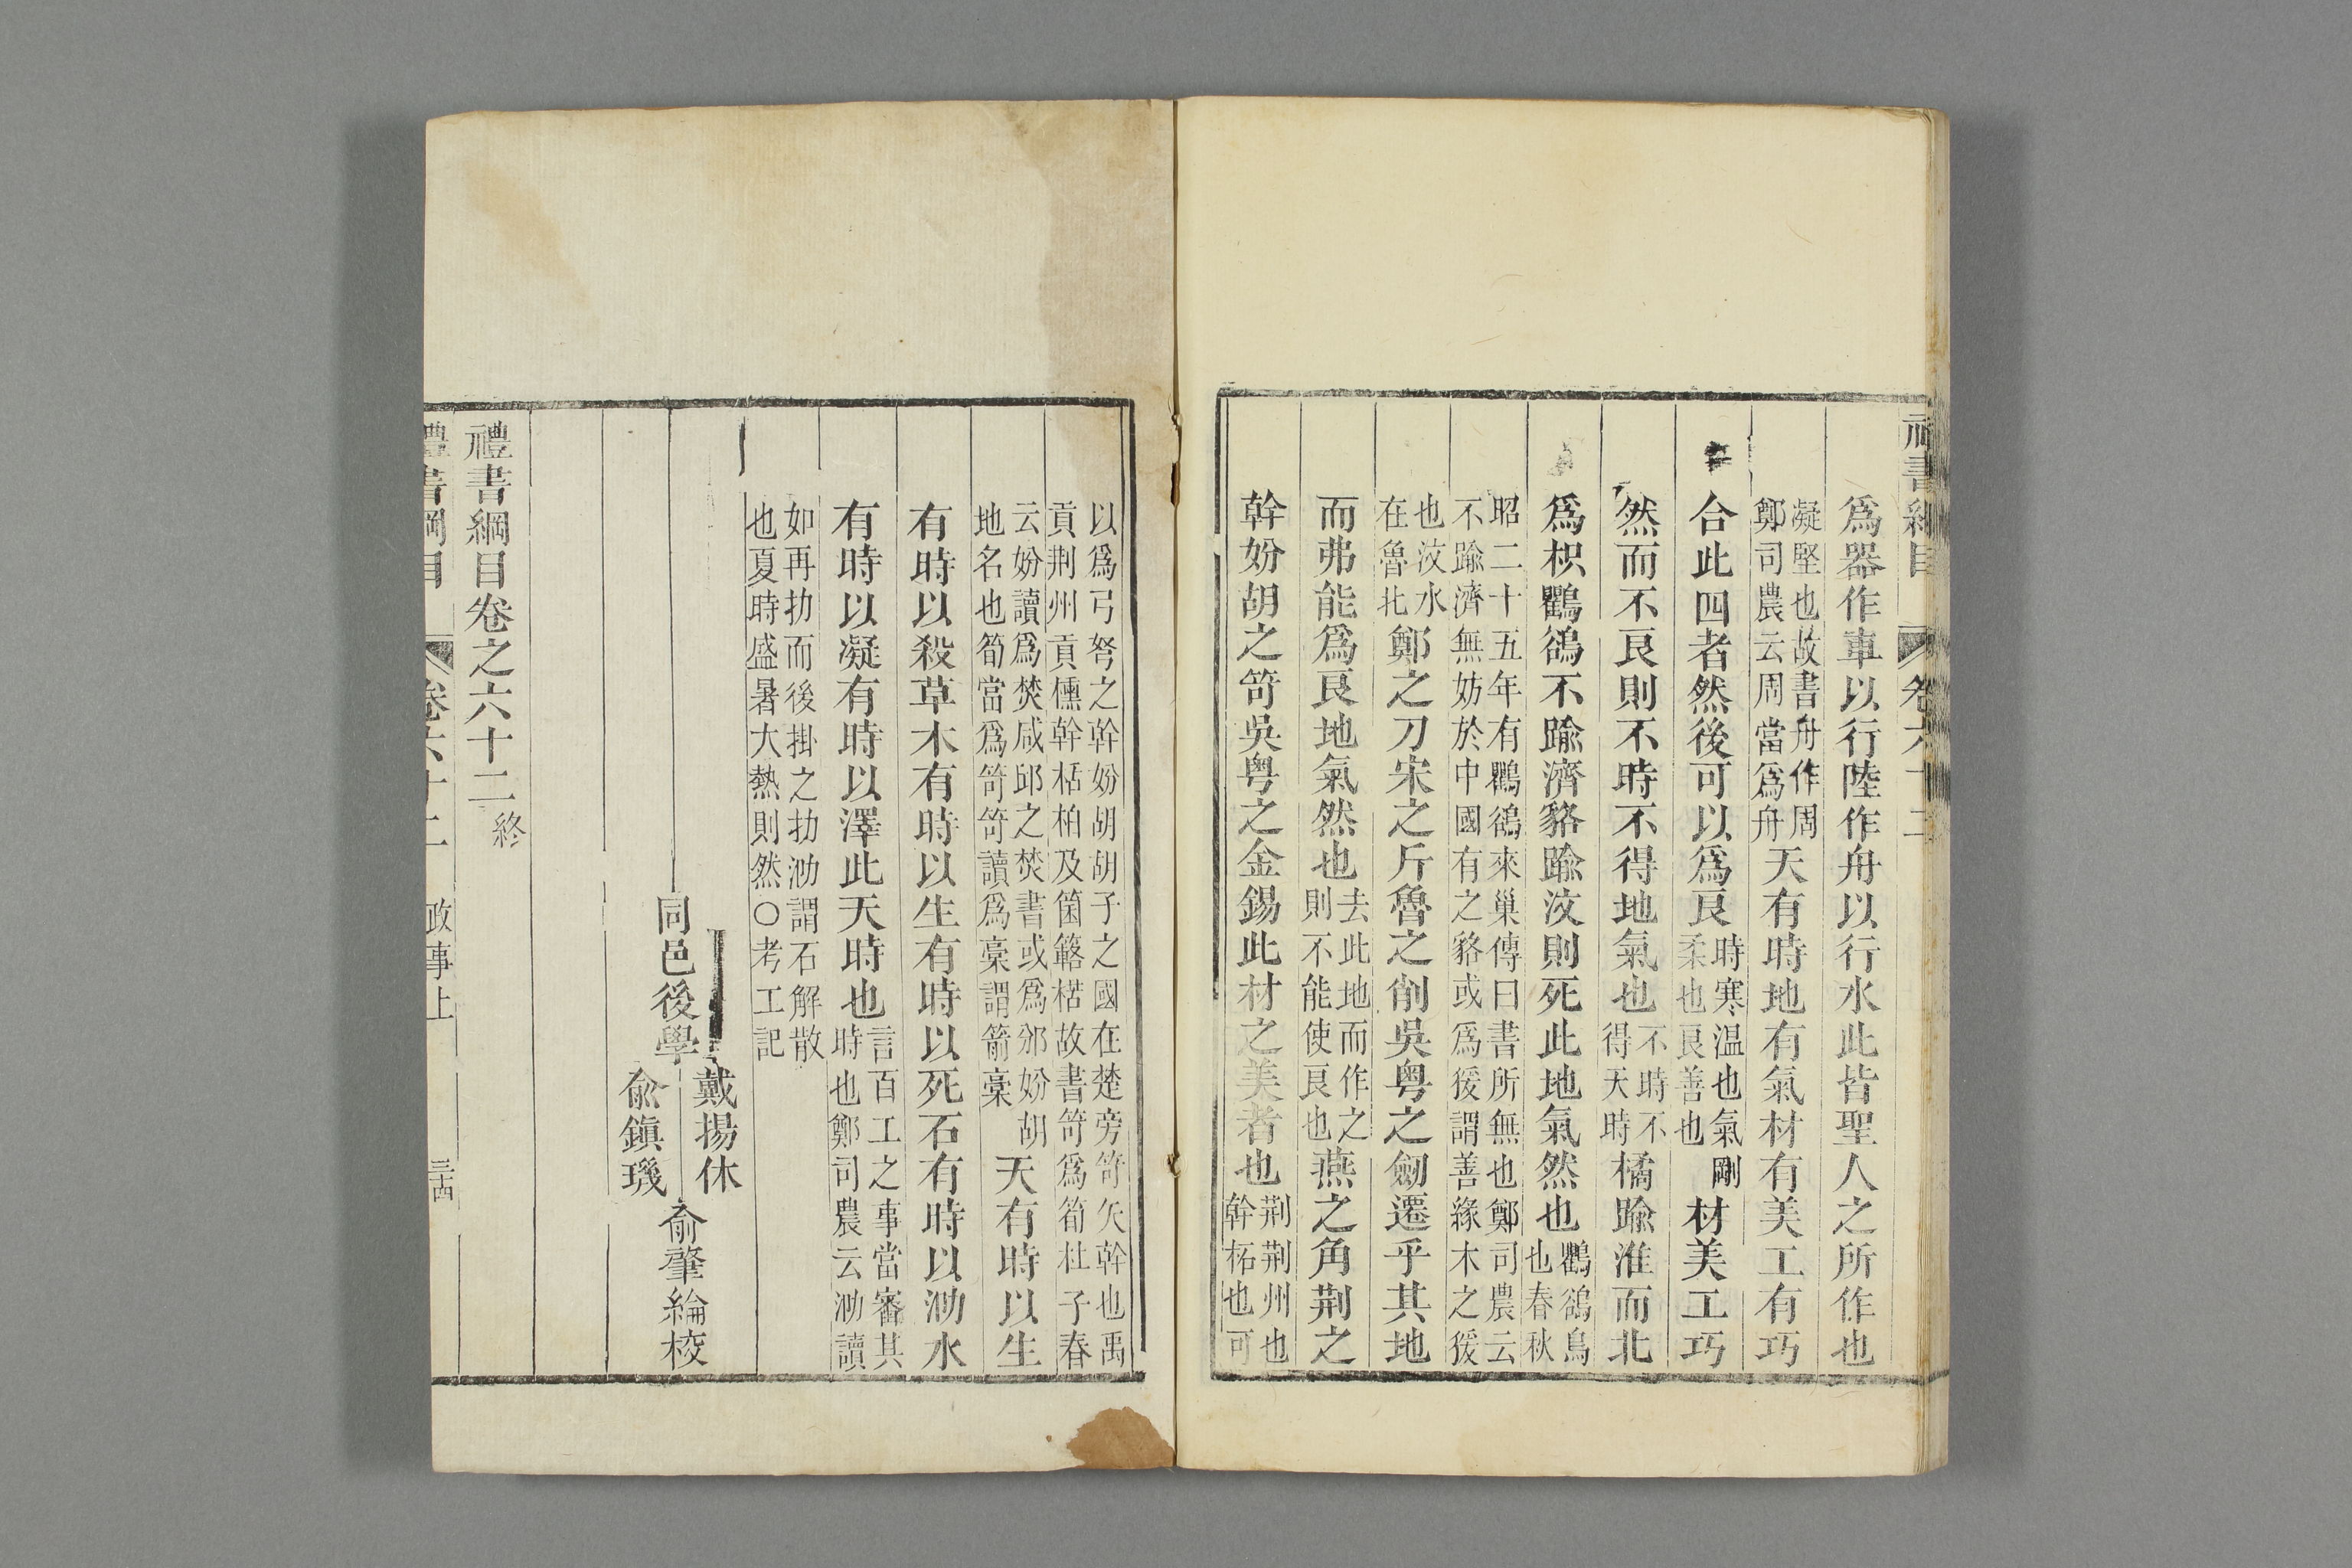 禮書綱目 卷六十二
爲器作車以行陸作舟以行水此皆聖人之所作也
凝堅也故書舟作周
鄭司農云周當爲舟
天有時地有氣材有美工有巧
合此四者然後可以爲良
時寒温也氣剛
柔也良善也
材美工巧
然而不良則不時不得地氣也
不時不
得天時
橘踰淮而北
爲枳鸜鵒不踰濟貉踰汶則死此地氣然也
鸜鵒鳥
也春秋
昭二十五年有鸜鵒來巢傳曰書所無也鄭司農云
不踰濟無妨於中國有之貉或爲猨謂善緣木之猨
也汶水
在魯北
鄭之刀宋之斤魯之削吳粤之劒遷乎其地
而弗能爲良地氣然也
去此地而作之
則不能使良也
燕之角荆之
幹妢胡之笴吳粤之金錫此材之美者也
荆荆州也
幹柘也可
以爲弓弩之幹妢胡胡子之國在楚旁笴矢幹也禹
貢荆州貢櫄幹栝柏及箘簬楛故書笴爲筍杜子春
云妢讀爲焚咸邱之焚書或爲邠妢胡
地名也筍當爲笴笴讀爲槀謂箭槀
天有時以生
有時以殺草木有時以生有時以死石有時以泐水
有時以凝有時以澤此天時也
言百工之事當審其
時也鄭司農云泐讀
如再扐而後掛之扐泐謂石解散
也夏時盛暑大熱則然○考工記
同邑後學
戴揚休
俞鎭璣
俞肇綸校
禮書綱目卷之六十二終
禮書綱目 卷六十二 政事上 三十四